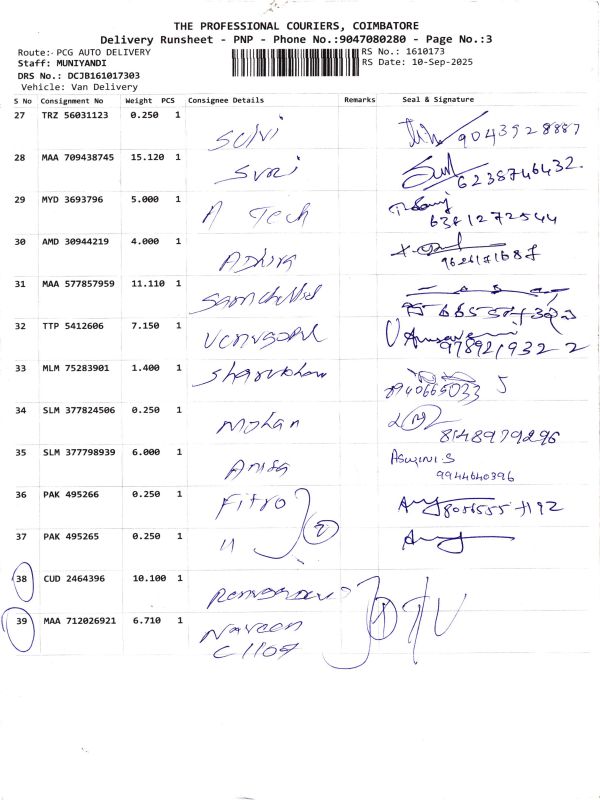 THE PROFESSIONAL COURIERS, COIMBATORE
Delivery Runsheet - PNP - Phone No.:9047080280 - Page No.:3
Route:- PCG AUTO DELIVERY RS No.: 1610173
Staff: MUNIYANDI RS Date: 10-Sep-2025
DRS No.: DCJB161017303
Vehicle: Van Delivery
S No Consignment No Weight PCS Consignee Details Remarks Seal & Signature
27 TRZ 56031123 0.250 1 Selvi 9043928887
28 MAA 709438745 15.120 1 Suri 6238746432.
29 MYD 3693796 5.000 1 A Tech 6381272544
30 AMD 30944219 4.000 1
31 MAA 577857959 11.110 1
32 TTP 5412606 7.150 1 Venugopal
33 MLM 75283901 1.400 1
34 SLM 377824506 0.250 1 Mohan 8148979296
35 SLM 377798939 6.000 1 Anisa Aswini S
9944640396
36 PAK 495266 0.250 1 Fitro
37 PAK 495265 0.250 1 11 2
38 CUD 2464396 10.100 1
39 MAA 712026921 6.710 1 Naveen
C 1109